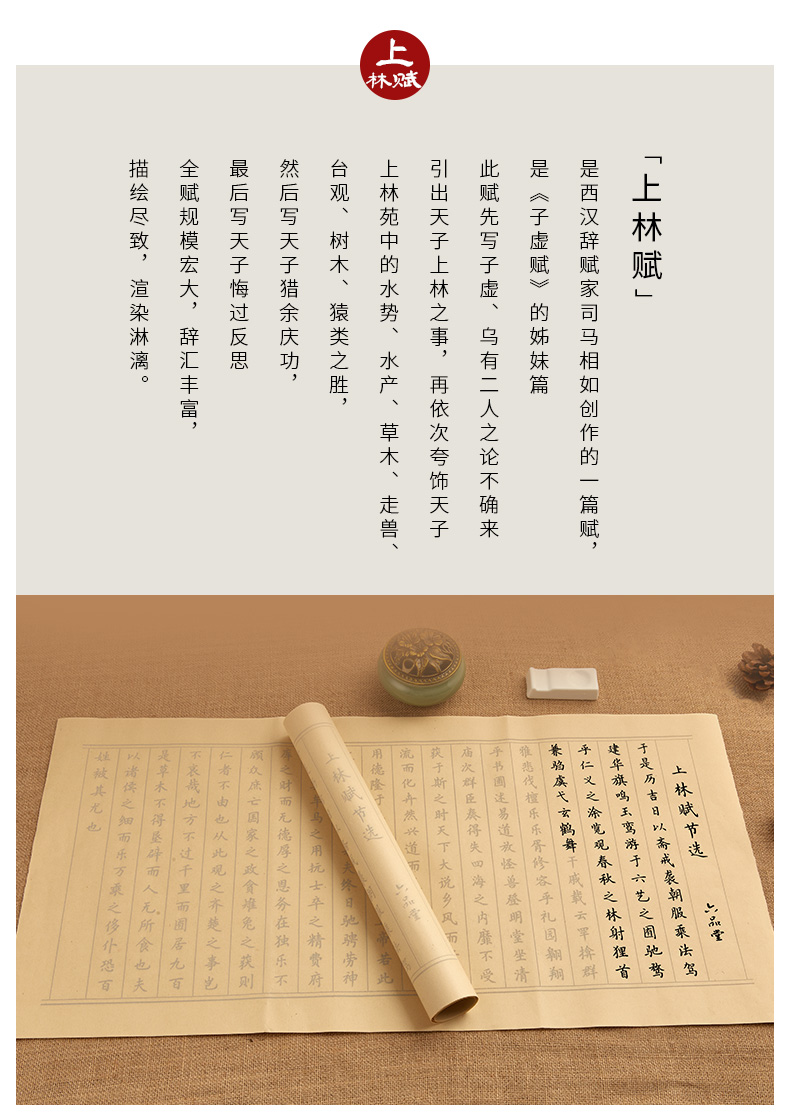 上
林赋
「上林赋」
是西汉辞赋家司马相如创作的一篇赋，
是《子虚赋》的姊妹篇
此赋先写子虚、乌有二人之论不确来
引出天子上林之事，再依次夸饰天子
上林苑中的水势、水产、草木、走兽、
台观、树木、猿类之胜，
然后写天子猎余庆功，
最后写天子悔过反思
全赋规模宏大，辞汇丰富，
描绘尽致，渲染淋漓。
上林赋节选
六品堂
于是历吉日以斋戒袭朝服乘法驾
建华旗鸣玉鸾游于六艺之囿驰骛
乎仁义之涂览观春秋之林射狸首
兼驺虞弋玄鹤舞干戚载云罕揜群
雅悲伐檀乐乐胥修容乎礼园翱翔
乎书圃述易道放怪兽登明堂坐清
庙次群臣奏得失四海之内靡不受
获于斯之时天下大说乡风而
流而化卉然兴道而
用德隆于
帝若此
上林赋节选
六品堂
终日驰骋劳神
车马之用抗士卒之精费府
之财而无德厚之恩务在独乐不
顾众庶亡国家之政贪雉兔之获则
仁者不由也从此观之齐楚之事岂
不哀哉地方不过千里而囿居九百
是草木不得垦辟而人无所食也夫
以诸侯之细而乐万乘之侈仆恐百
姓被其尤也